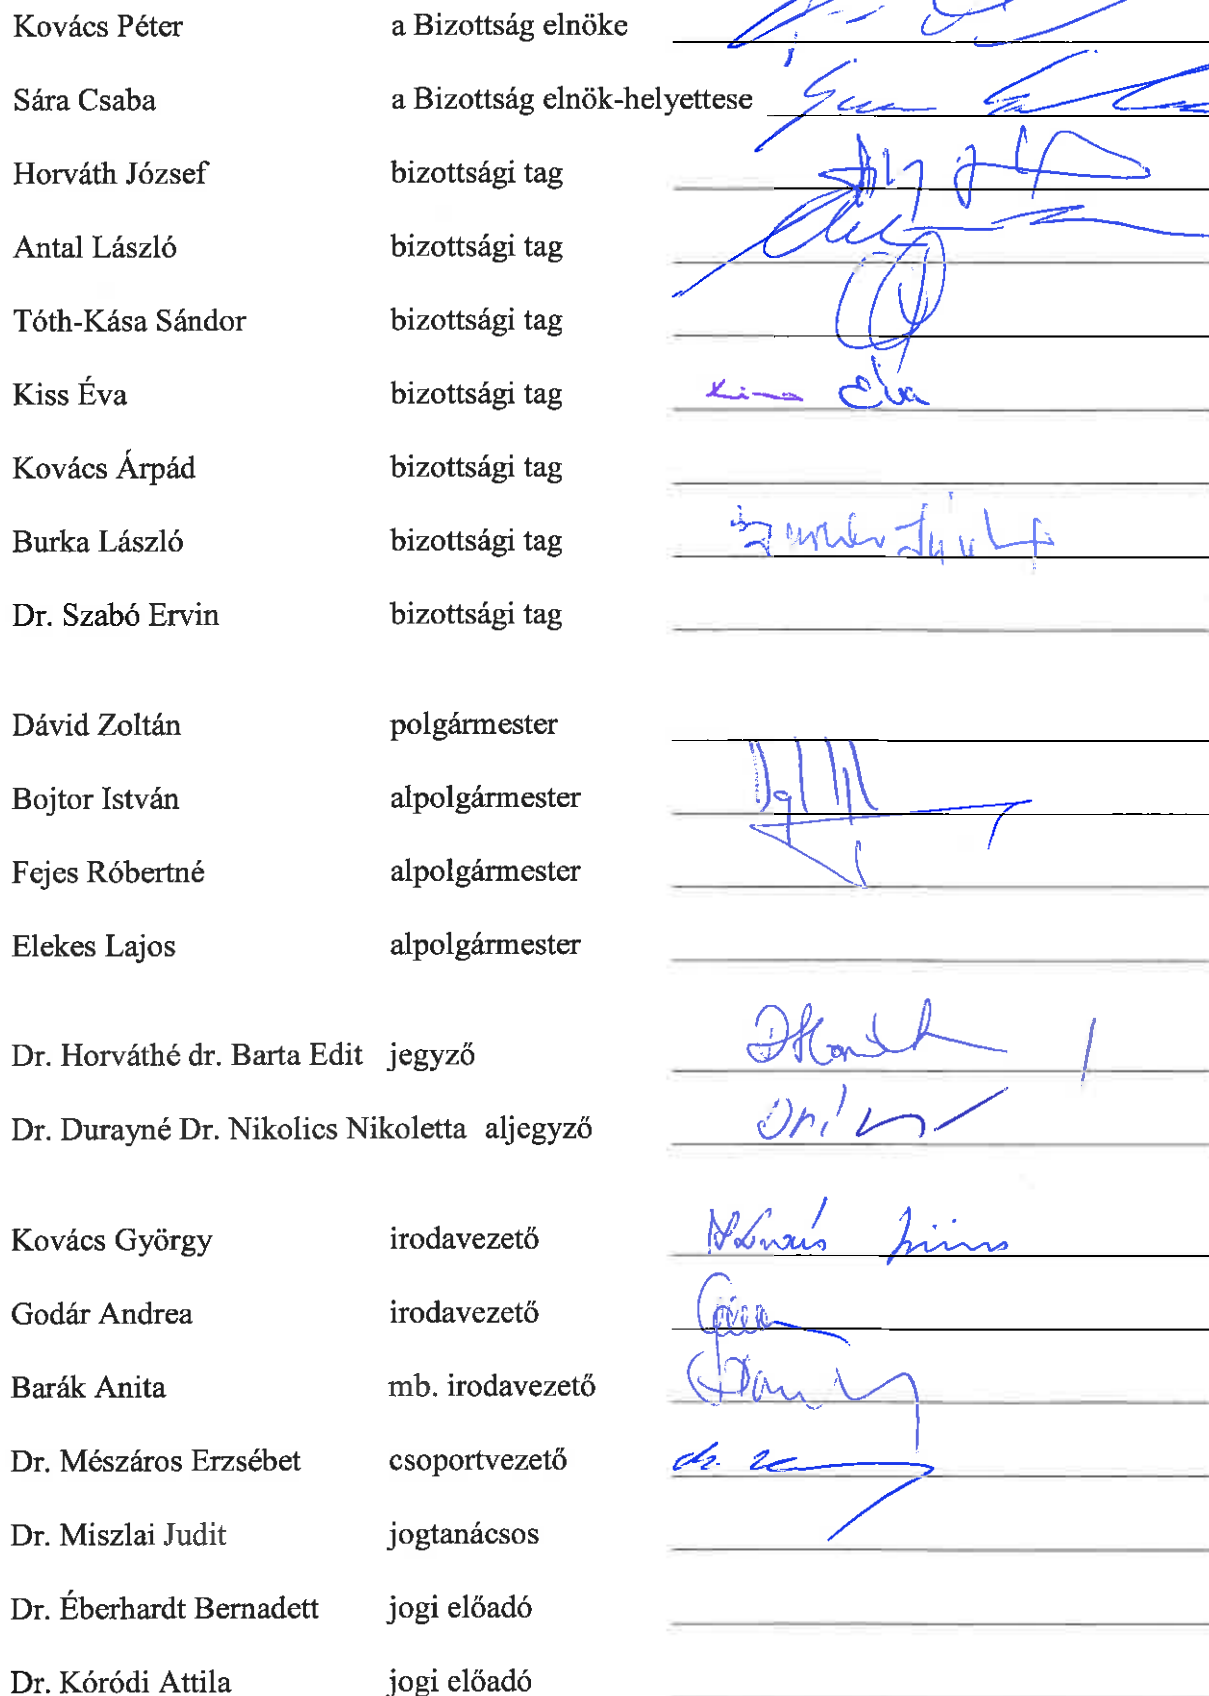 Kovács Péter a Bizottság elnöke
Sára Csaba a Bizottság elnök-helyettese
Horváth József bizottsági tag
Antal László bizottsági tag
Tóth-Kása Sándor bizottsági tag
Kiss Éva bizottsági tag Kiss Éva
Kovács Árpád bizottsági tag
Burka László bizottsági tag
Dr. Szabó Ervin bizottsági tag
Dávid Zoltán polgármester
Bojtor István alpolgármester
Fejes Róbertné alpolgármester
Elekes Lajos alpolgármester
Dr. Horváthé dr. Barta Edit jegyző
Dr. Durayné Dr. Nikolics Nikoletta aljegyző
Kovács György irodavezető
Godár Andrea irodavezető
Barák Anita mb. irodavezető
Dr. Mészáros Erzsébet csoportvezető dr.
Dr. Miszlai Judit jogtanácsos
Dr. Éberhardt Bernadett jogi előadó
Dr. Kóródi Attila jogi előadó